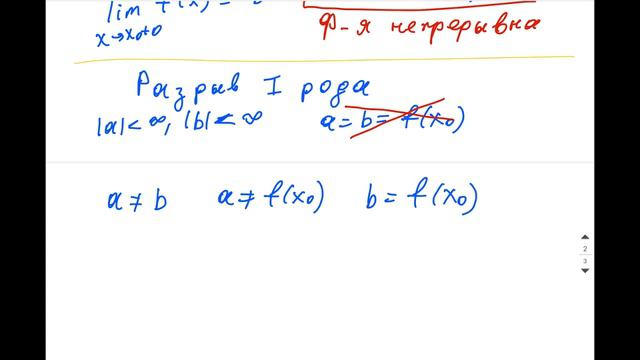 lim f(x) =
x→x₀+0
Ф-я непрерывна
Разрыв I рода
|a|<∞, |b|<∞ a = b = f(x₀)
a ≠ b a ≠ f(x₀) b = f(x₀)
2
3